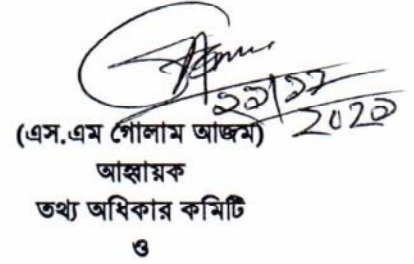 ২১|১১
2020
(এস.এম গোলাম আজম)
আহ্বায়ক
তথ্য অধিকার কমিটি
ও